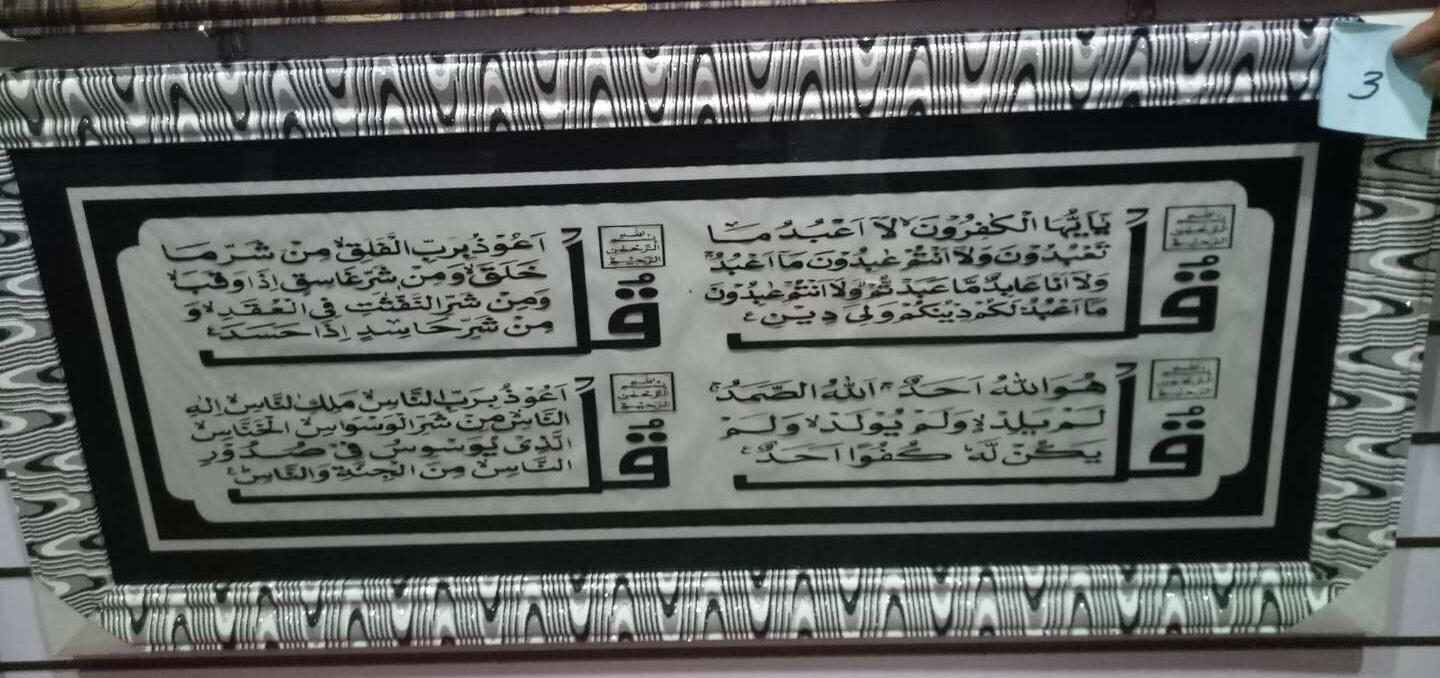 3
بسم الله
الرحمن
الرحيم
قُلْ
يَٰٓاَيُّهَا الْكٰفِرُوْنَ ۙ لَآ اَعْبُدُ مَا
تَعْبُدُوْنَ ۙ وَلَآ اَنْتُمْ عٰبِدُوْنَ مَآ اَعْبُدُ ۚ
وَلَآ اَنَا عَابِدٌ مَّا عَبَدْتُّمْ ۙ وَلَآ اَنْتُمْ عٰبِدُوْنَ
مَآ اَعْبُدُ ؕ لَكُمْ دِيْنُكُمْ وَلِيَ دِيْنِ
بسم الله
الرحمن
الرحيم
قُلْ
اَعُوْذُ بِرَبِّ الْفَلَقِ ۙ مِنْ شَرِّ مَا
خَلَقَ ۙ وَمِنْ شَرِّ غَاسِقٍ اِذَا وَقَبَ ۙ
وَمِنْ شَرِّ النَّفّٰثٰتِ فِي الْعُقَدِ ۙ وَ
مِنْ شَرِّ حَاسِدٍ اِذَا حَسَدَ
بسم الله
الرحمن
الرحيم
قُلْ
هُوَ اللّٰهُ اَحَدٌ ۚ اَللّٰهُ الصَّمَدُ ۚ
لَمْ يَلِدْ ۙ وَلَمْ يُوْلَدْ ۙ وَلَمْ
يَكُنْ لَّهٗ كُفُوًا اَحَدٌ
بسم الله
الرحمن
الرحيم
قُلْ
اَعُوْذُ بِرَبِّ النَّاسِ ۙ مَلِكِ النَّاسِ ۙ اِلٰهِ
النَّاسِ ۙ مِنْ شَرِّ الْوَسْوَاسِ الْخَنَّاسِ ۙ
الَّذِيْ يُوَسْوِسُ فِيْ صُدُوْرِ
النَّاسِ ۙ مِنَ الْجِنَّةِ وَالنَّاسِ